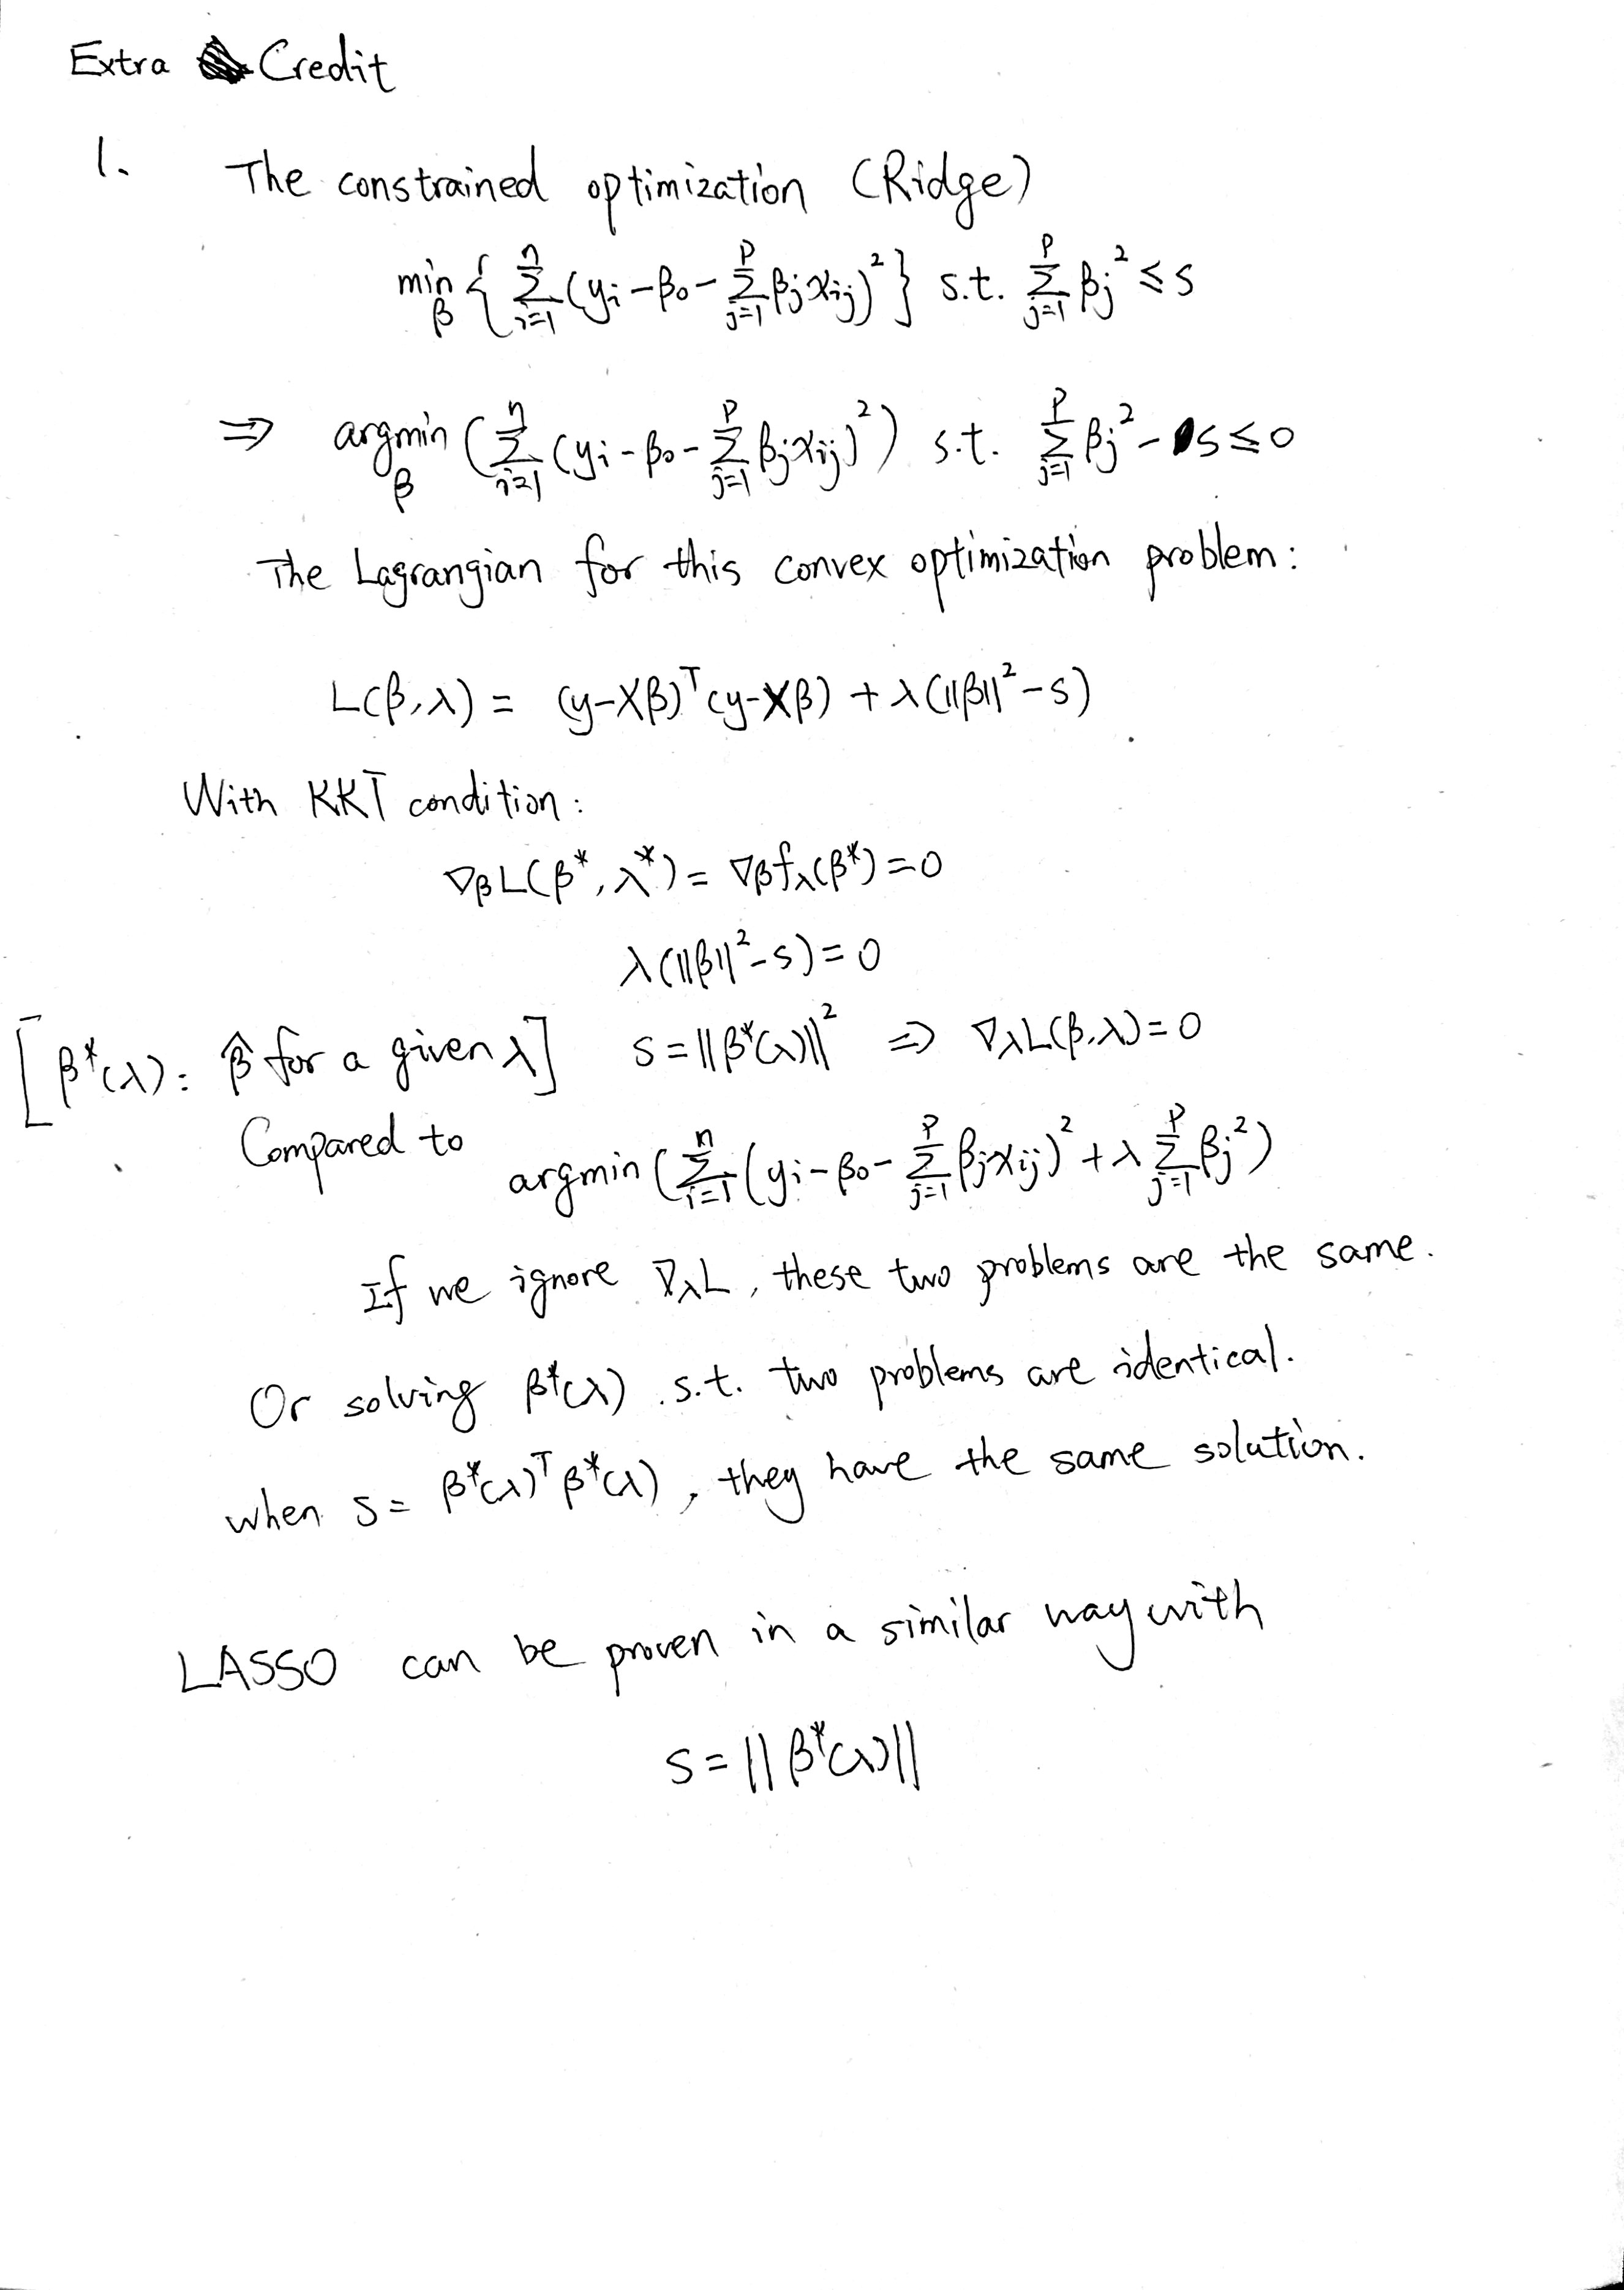 Extra Credit
1. The constrained optimization (Ridge)
min_β { Σ_{i=1}^{n} (y_i - β_0 - Σ_{j=1}^{p} β_j x_{ij})^2 } s.t. Σ_{j=1}^{p} β_j^2 ≤ s
⇒ argmin_β ( Σ_{i=1}^{n} (y_i - β_0 - Σ_{j=1}^{p} β_j x_{ij})^2 ) s.t. Σ_{j=1}^{p} β_j^2 - s ≤ 0
The Lagrangian for this convex optimization problem:
L(β, λ) = (y-Xβ)^T (y-Xβ) + λ(||β||^2 - s)
With KKT condition:
∇_β L(β*, λ*) = ∇_β f_λ(β*) = 0
λ(||β||^2 - s) = 0
[β*(λ): β̂ for a given λ] s = ||β*(λ)||^2 ⇒ ∇_λ L(β, λ) = 0
Compared to argmin ( Σ_{i=1}^{n} (y_i - β_0 - Σ_{j=1}^{p} β_j x_{ij})^2 + λ Σ_{j=1}^{p} β_j^2 )
If we ignore ∇_λ L, these two problems are the same.
Or solving β*(λ) s.t. two problems are identical.
when s = β*(λ)^T β*(λ), they have the same solution.
LASSO can be proven in a similar way with
s = ||β*(λ)||